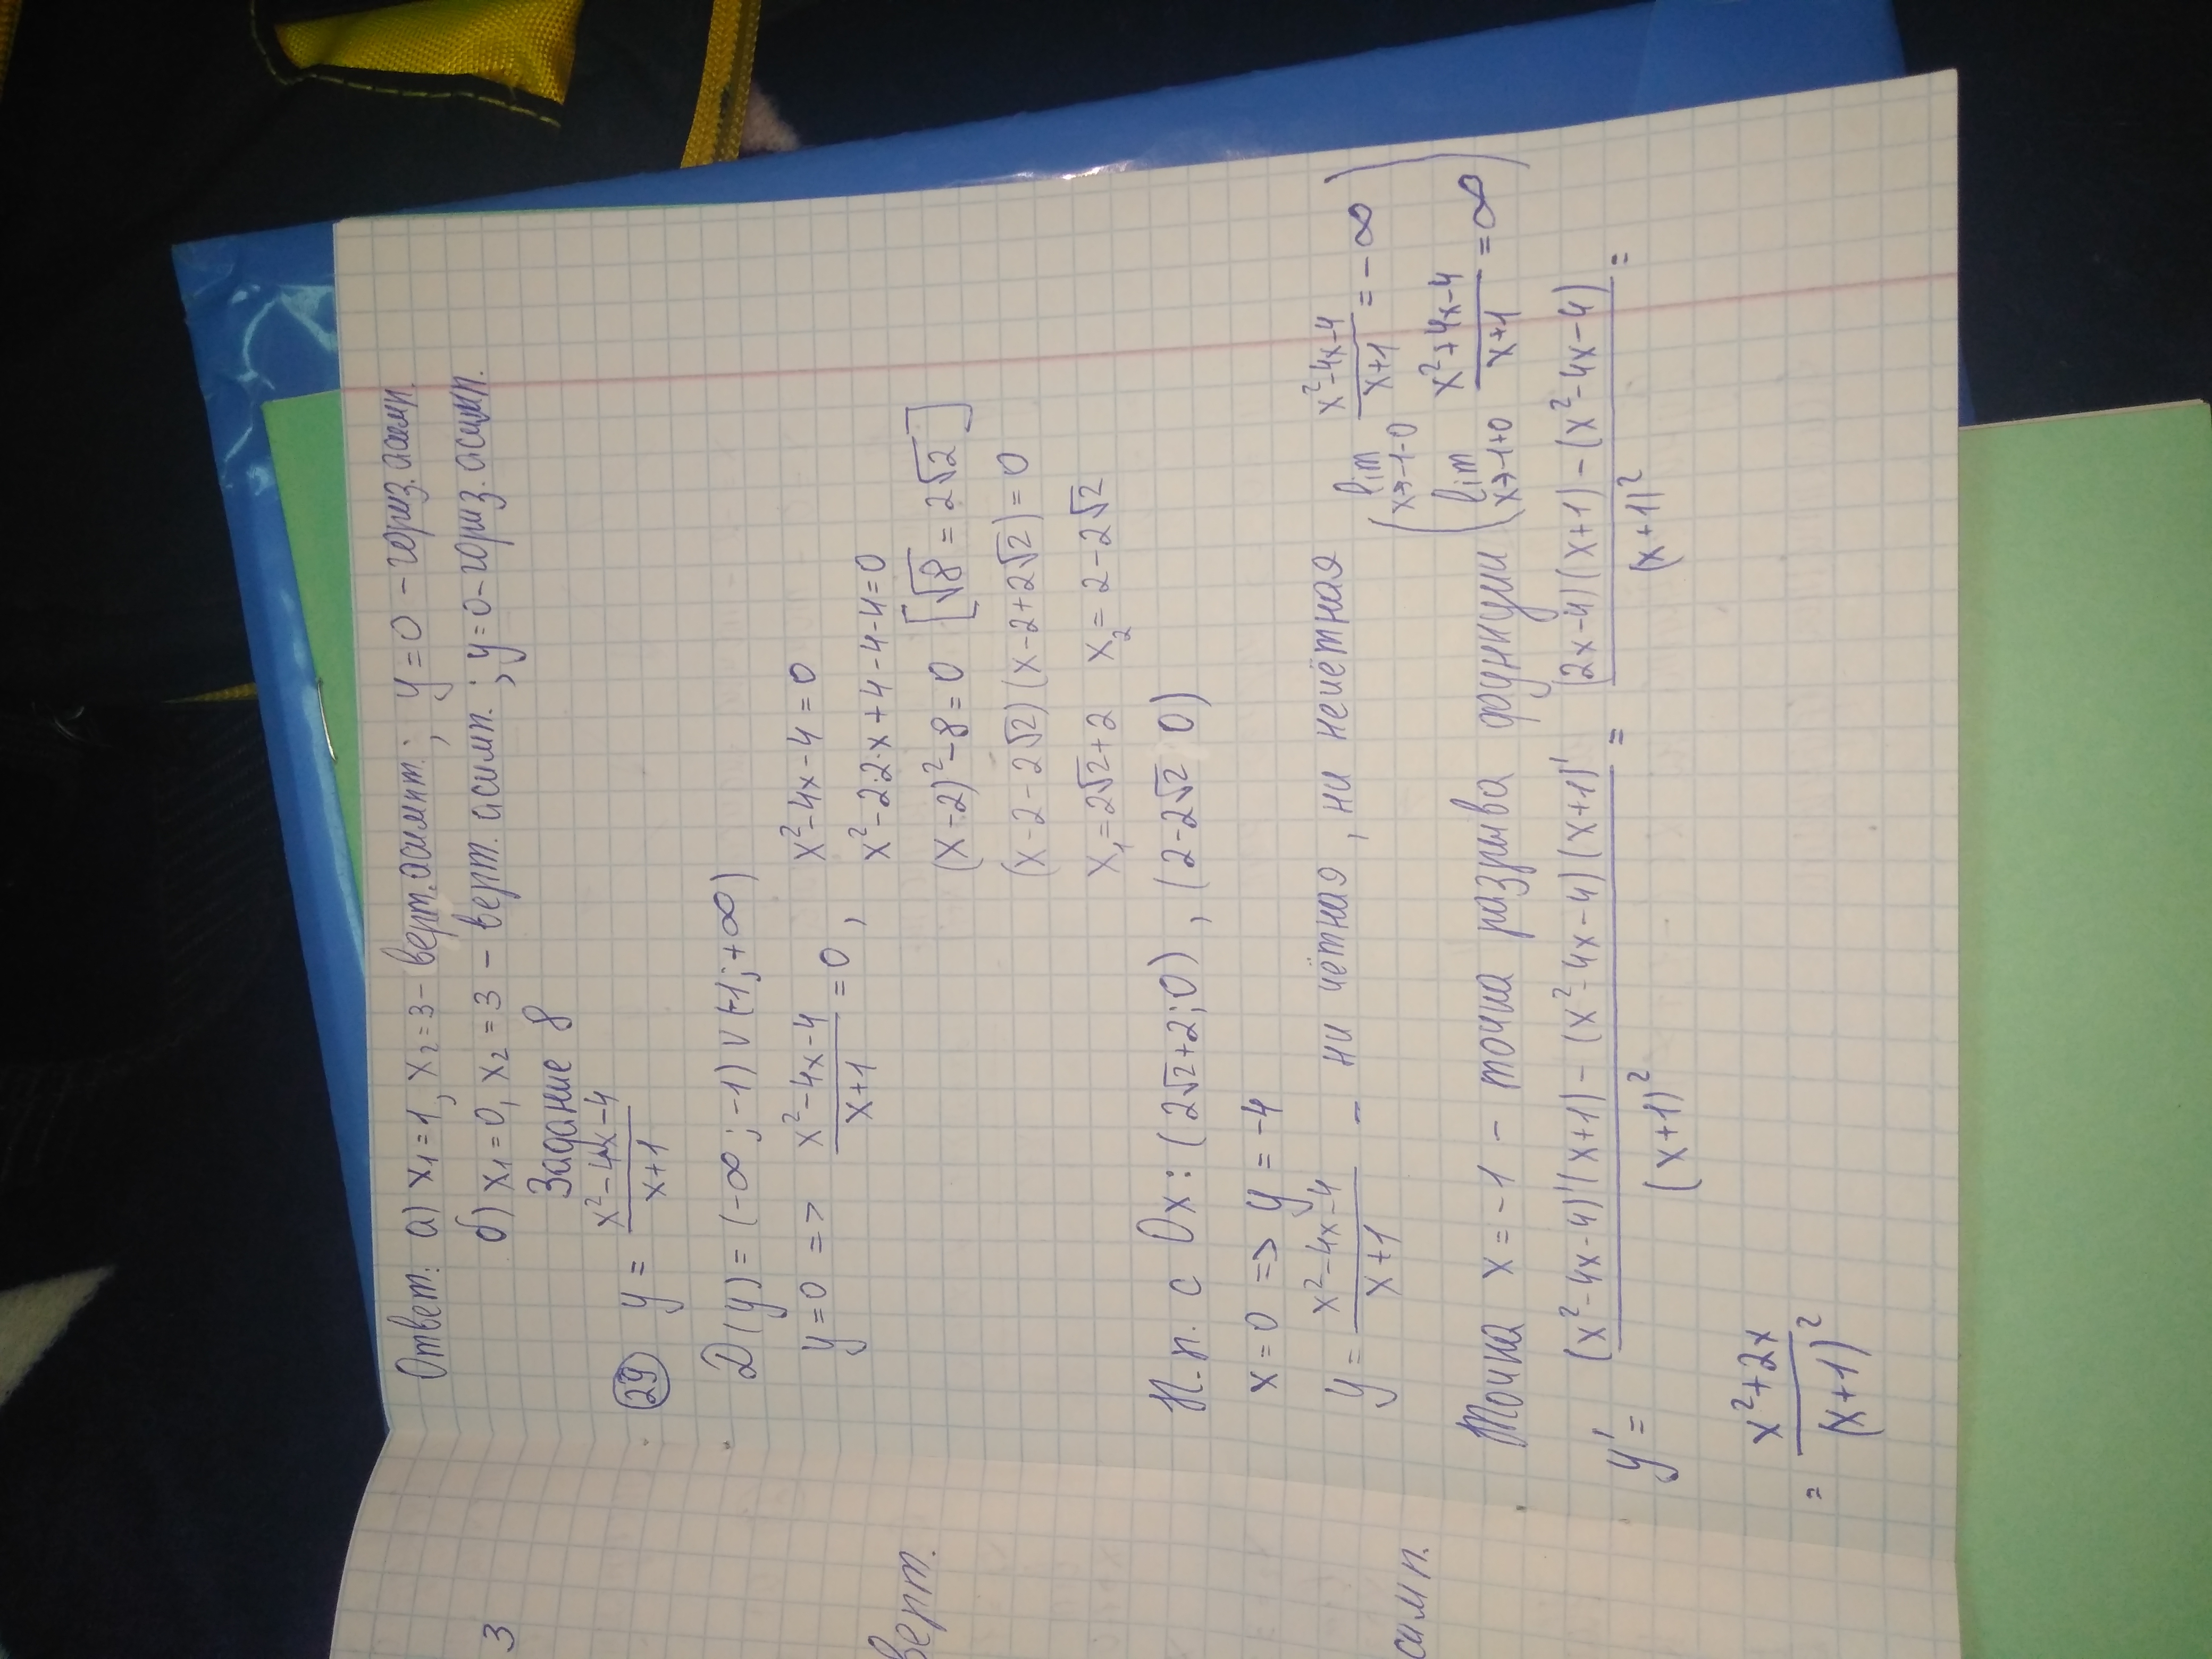 Ответ: а) x₁=1, x₂=3 – верт. асимпт.; y=0 – гориз. асимп.
б) x₁=0, x₂=3 – верт. асимп.; y=0 – гориз. асимп.
3
Задание 8
29 y = (x²-4x-4)/(x+1)
D(y) = (-∞; -1) ∪ (-1; +∞)
y=0 => (x²-4x-4)/(x+1) = 0, x²-4x-4=0
x²-2·2·x+4-4-4=0
верт.
(x-2)²-8=0 [√8 = 2√2]
(x-2-2√2)(x-2+2√2)=0
x₁=2√2+2 x₂=2-2√2
Н.п. с Ox: (2√2+2; 0), (2-2√2 0)
x=0 => y=-4
y = (x²-4x-4)/(x+1) – ни чётная, ни нечётная
симп.
Точка x=-1 – точка разрыва функции
(lim x→-1-0 (x²-4x-4)/(x+1) = -∞
lim x→-1+0 (x²+4x-4)/(x+1) = ∞)
y' = ((x²-4x-4)'(x+1) - (x²-4x-4)(x+1)')/(x+1)² = ((2x-4)(x+1) - (x²-4x-4))/(x+1)² =
= (x²+2x)/(x+1)²